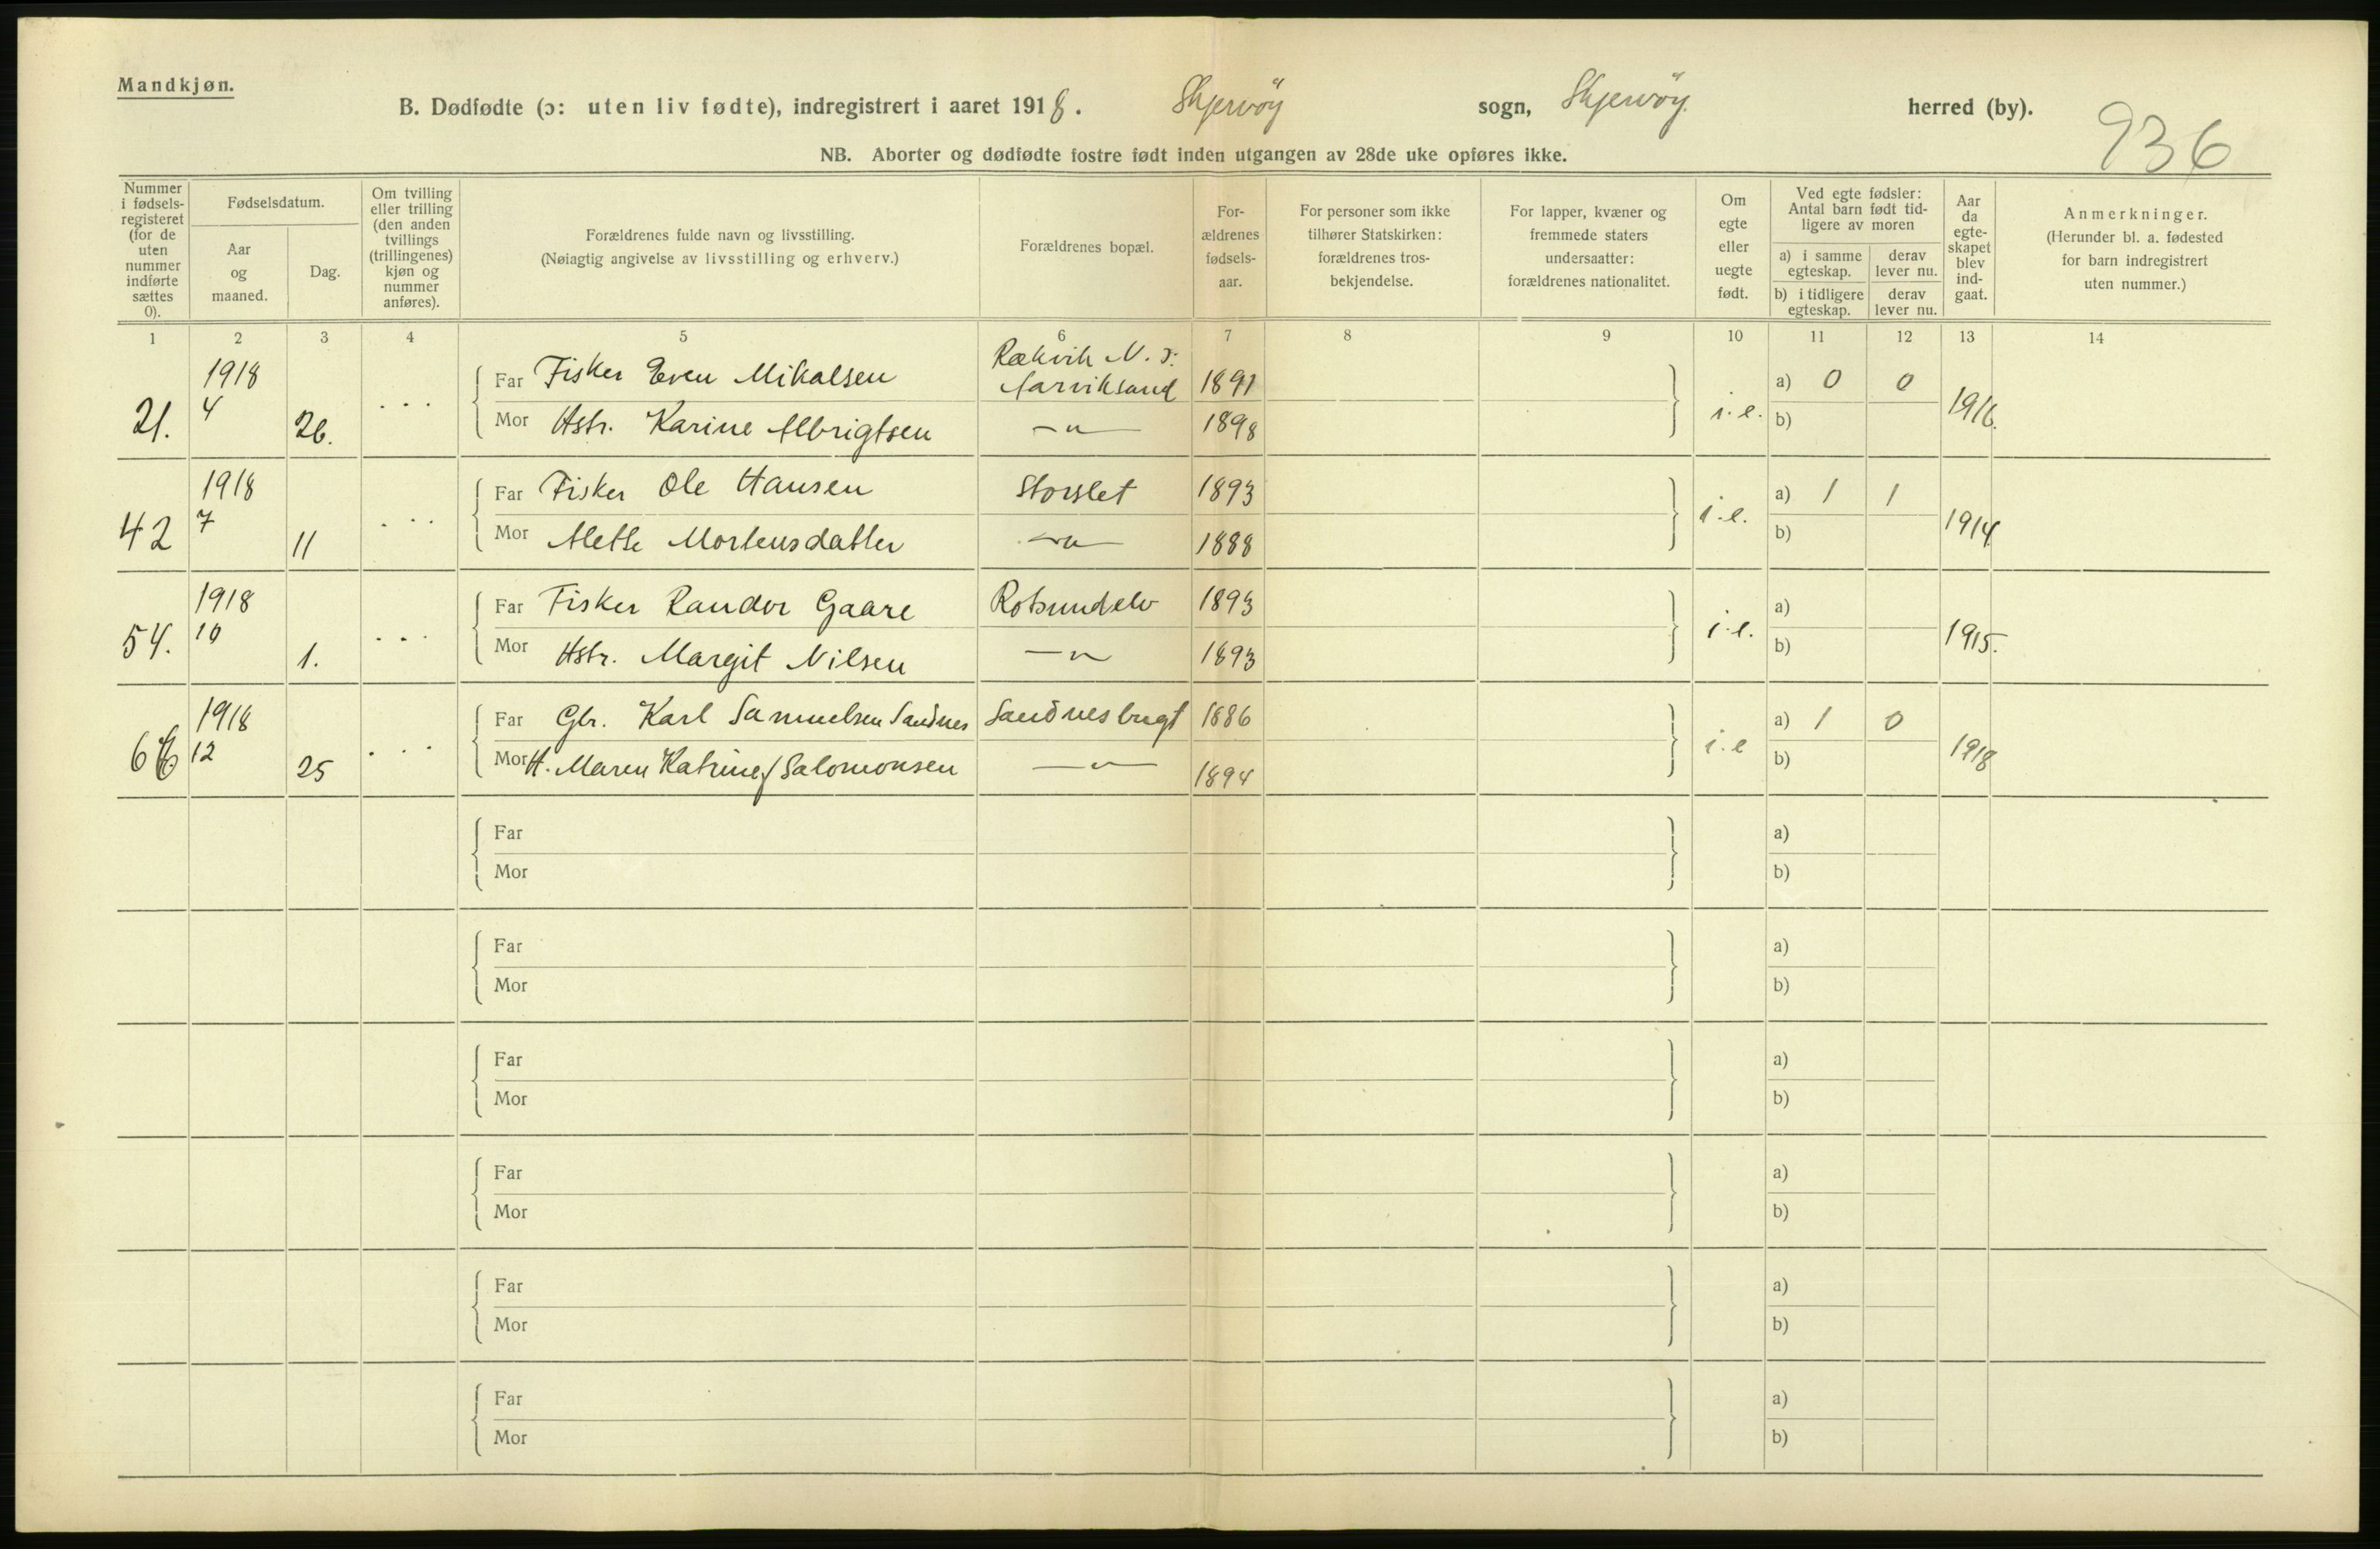 Mandkjøn.
B. Dødfødte (ɔ: uten liv fødte), indregistrert i aaret 1918. Skjervöy sogn, Skjervöy herred (by).
936
NB. Aborter og dødfødte fostre født inden utgangen av 28de uke opføres ikke.
Nummer i fødsels-registeret (for de uten nummer indførte sættes 0).
Fødselsdatum.
Aar og maaned.
Dag.
Om tvilling eller trilling (den anden tvillings (trillingenes) kjøn og nummer anføres).
Forældrenes fulde navn og livsstilling.
(Nøiagtig angivelse av livsstilling og erhverv.)
Forældrenes bopæl.
For-ældrenes fødsels-aar.
For personer som ikke tilhører Statskirken: forældrenes tros-bekjendelse.
For lapper, kvæner og fremmede staters undersaatter: forældrenes nationalitet.
Om egte eller uegte født.
Ved egte fødsler: Antal barn født tid-ligere av moren
a) i samme egteskap. derav lever nu.
b) i tidligere egteskap. derav lever nu.
Aar da egte-skapet blev ind-gaat.
Anmerkninger.
(Herunder bl. a. fødested for barn indregistrert uten nummer.)
1 2 3 4 5 6 7 8 9 10 11 12 13 14
21. 1918 4 26. Far Fisker Even Mikalsen Rækvik N. 1891 i.e. a) 0 0 1916.
Mor Hstr. Karine Albrigtsen —"— 1898 b)
42 1918 7 11 Far Fisker Ole Hansen Storslet 1893 i.e. a) 1 1 1914
Mor Mortensdatter —"— 1888 b)
54. 1918 10 1. Far Fisker Randor Gaare Rotsundelv 1893 i.e. a) 1915.
Mor Hstr. Margit Nilsen —"— 1893 b)
1918 12 25 Far Gbr. Karl Samuelsen Sandnes Sandnesbugt 1886 i.e a) 1 0 1918
Mor H. Maren Katrine Salomonsen —"— 1894 b)
Far a)
Mor b)
Far a)
Mor b)
Far a)
Mor b)
Far a)
Mor b)
Far a)
Mor b)
Far a)
Mor b)